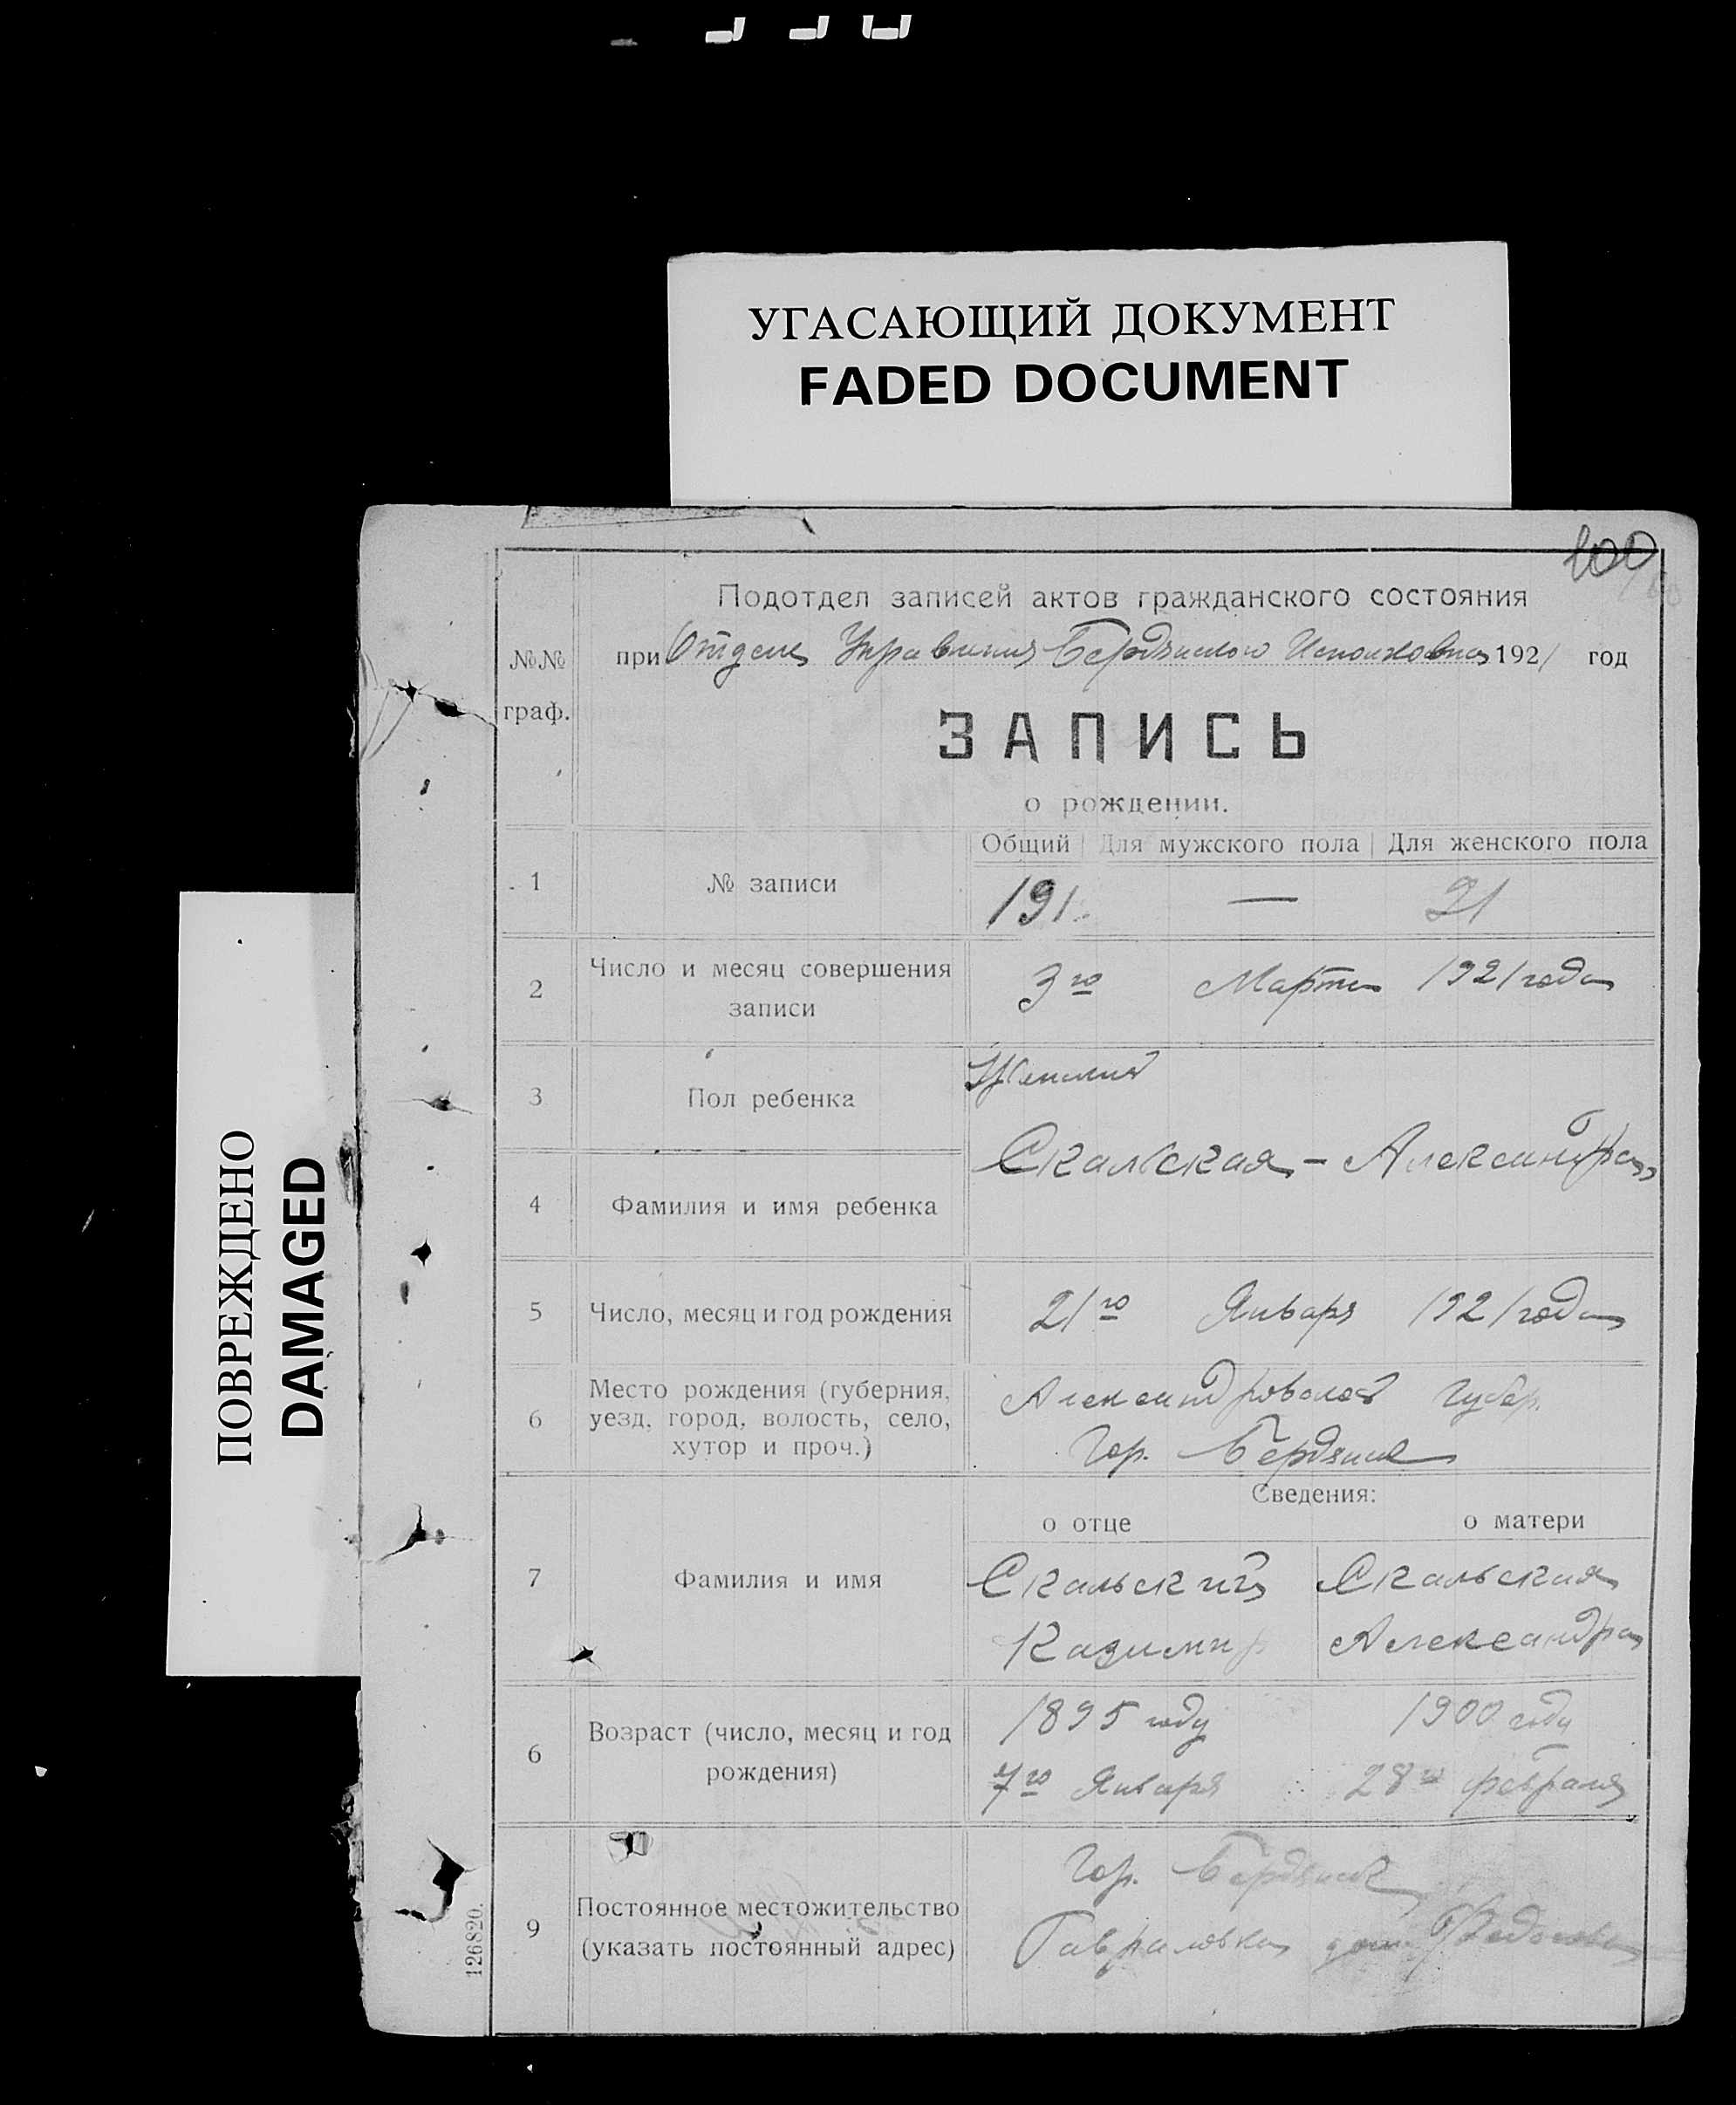 УГАСАЮЩИЙ ДОКУМЕНТ
FADED DOCUMENT
ПОВРЕЖДЕНО
DAMAGED
100
Подотдел записей актов гражданского состояния
№№ граф.
при Отделе Управления Бердянского Исполкома 1921 год
ЗАПИСЬ
о рождении.
Общий Для мужского пола Для женского пола
1 № записи 191. — 21
2 Число и месяц совершения записи 3го Марта 1921 года
3 Пол ребенка Женский
4 Фамилия и имя ребенка Скальская - Александра
5 Число, месяц и год рождения 21го Января 1921 года
6 Место рождения (губерния, уезд, город, волость, село, хутор и проч.) Александровской губер.
Гор. Бердянск
Сведения:
о отце о матери
7 Фамилия и имя Скальский Скальская
Казимир Александра
6 Возраст (число, месяц и год рождения) 1895 году 1900 году
7го Января 28го февраля
9 Постоянное местожительство (указать постоянный адрес) Гор. Бердянск
126820.